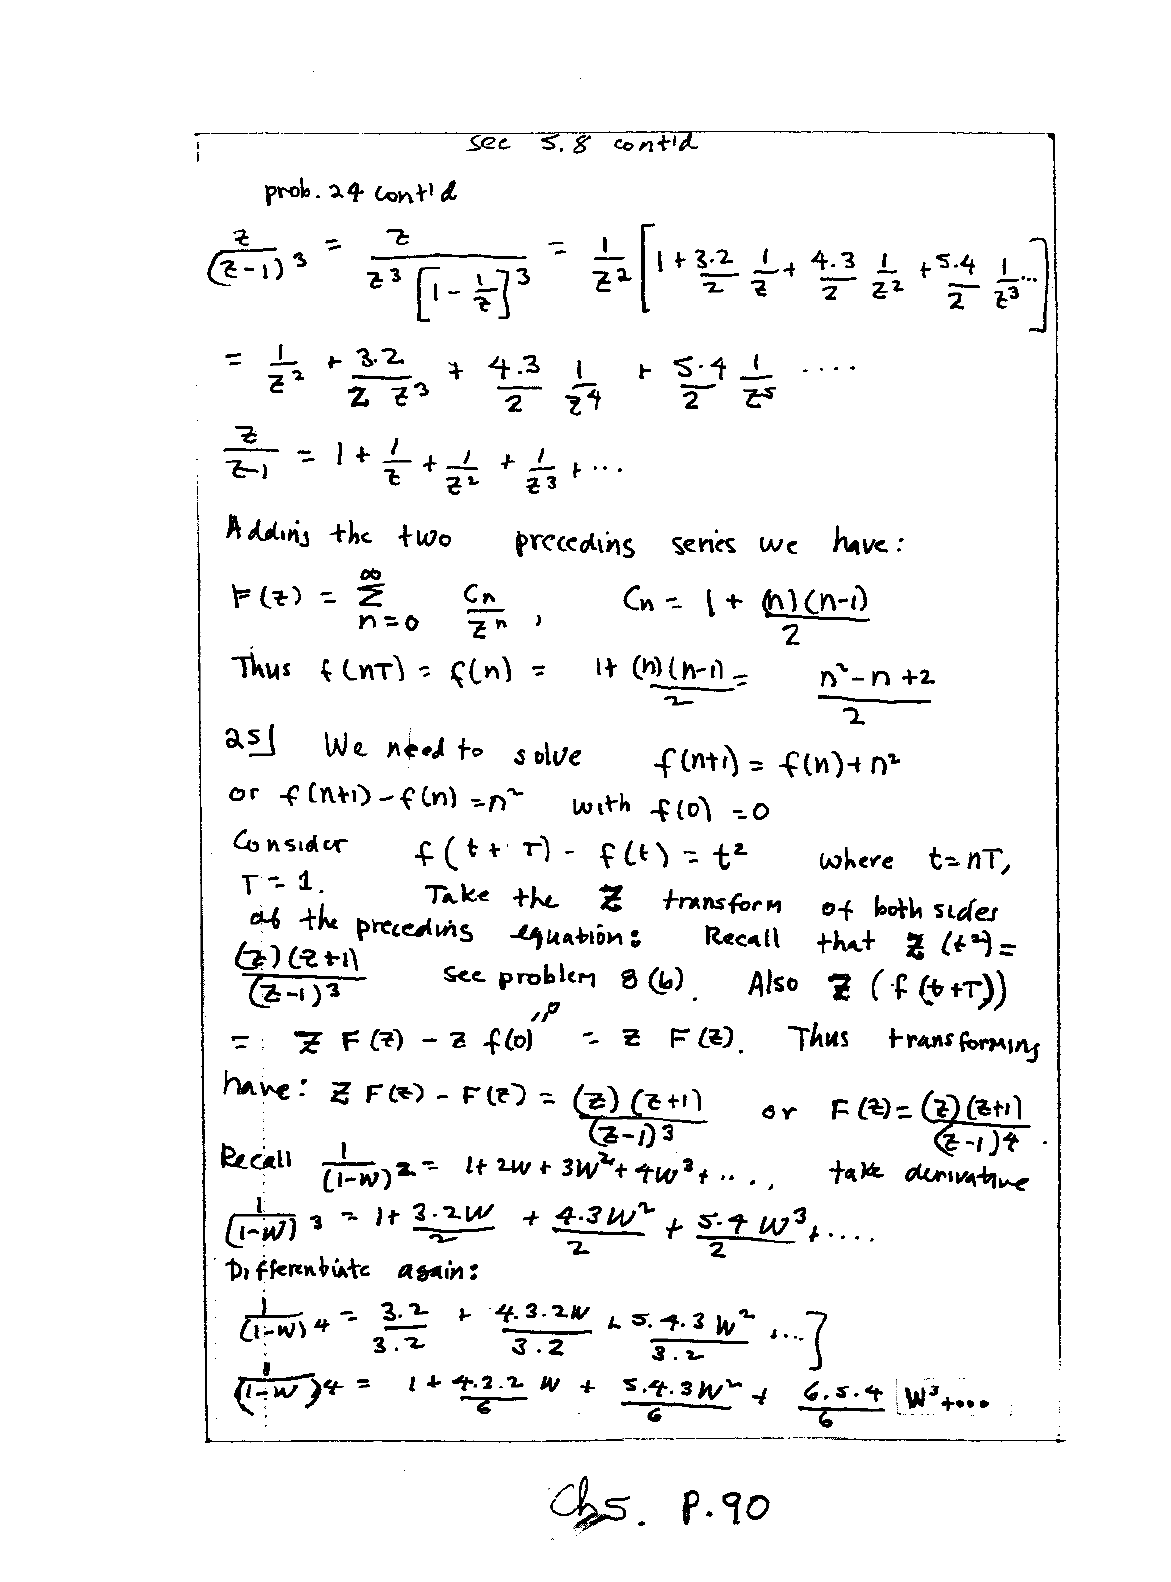 sec 5.8 cont'd
prob. 24 cont'd
z/(z-1)^3 = z/(z^3 [1 - 1/z]^3) = 1/z^2 [1 + 3.2/2 1/z + 4.3/2 1/z^2 + 5.4/2 1/z^3 ...]
= 1/z^2 + 3.2/(2 z^3) + 4.3/2 1/z^4 + 5.4/2 1/z^5 ....
z/(z-1) = 1 + 1/z + 1/z^2 + 1/z^3 + ...
Adding the two preceding series we have:
F(z) = ∑_{n=0}^{∞} Cn/z^n , Cn = 1 + (n)(n-1)/2
Thus f(nT) = f(n) = 1 + (n)(n-1)/2 = (n^2 - n + 2)/2
25] We need to solve f(n+1) = f(n) + n^2
or f(n+1) - f(n) = n^2 with f(0) = 0
Consider f(t+T) - f(t) = t^2 where t = nT,
T = 1. Take the Z transform of both sides
of the preceding equation: Recall that Z(t^2) =
(z)(z+1)/(z-1)^3 see problem 8(b). Also Z(f(t+T))
= z F(z) - z f(0) = z F(z). Thus transforming
have: z F(z) - F(z) = (z)(z+1)/(z-1)^3 or F(z) = (z)(z+1)/(z-1)^4.
Recall 1/(1-w)^2 = 1 + 2w + 3w^2 + 4w^3 + ..., take derivative
1/(1-w)^3 = 1 + 3.2w/2 + 4.3w^2/2 + 5.4w^3/2 + ....
Differentiate again:
1/(1-w)^4 = 3.2/3.2 + 4.3.2w/3.2 + 5.4.3w^2/3.2 + ...]
1/(1-w)^4 = 1 + 4.3.2/6 w + 5.4.3w^2/6 + 6.5.4/6 w^3 + ...
Ch5. P.90